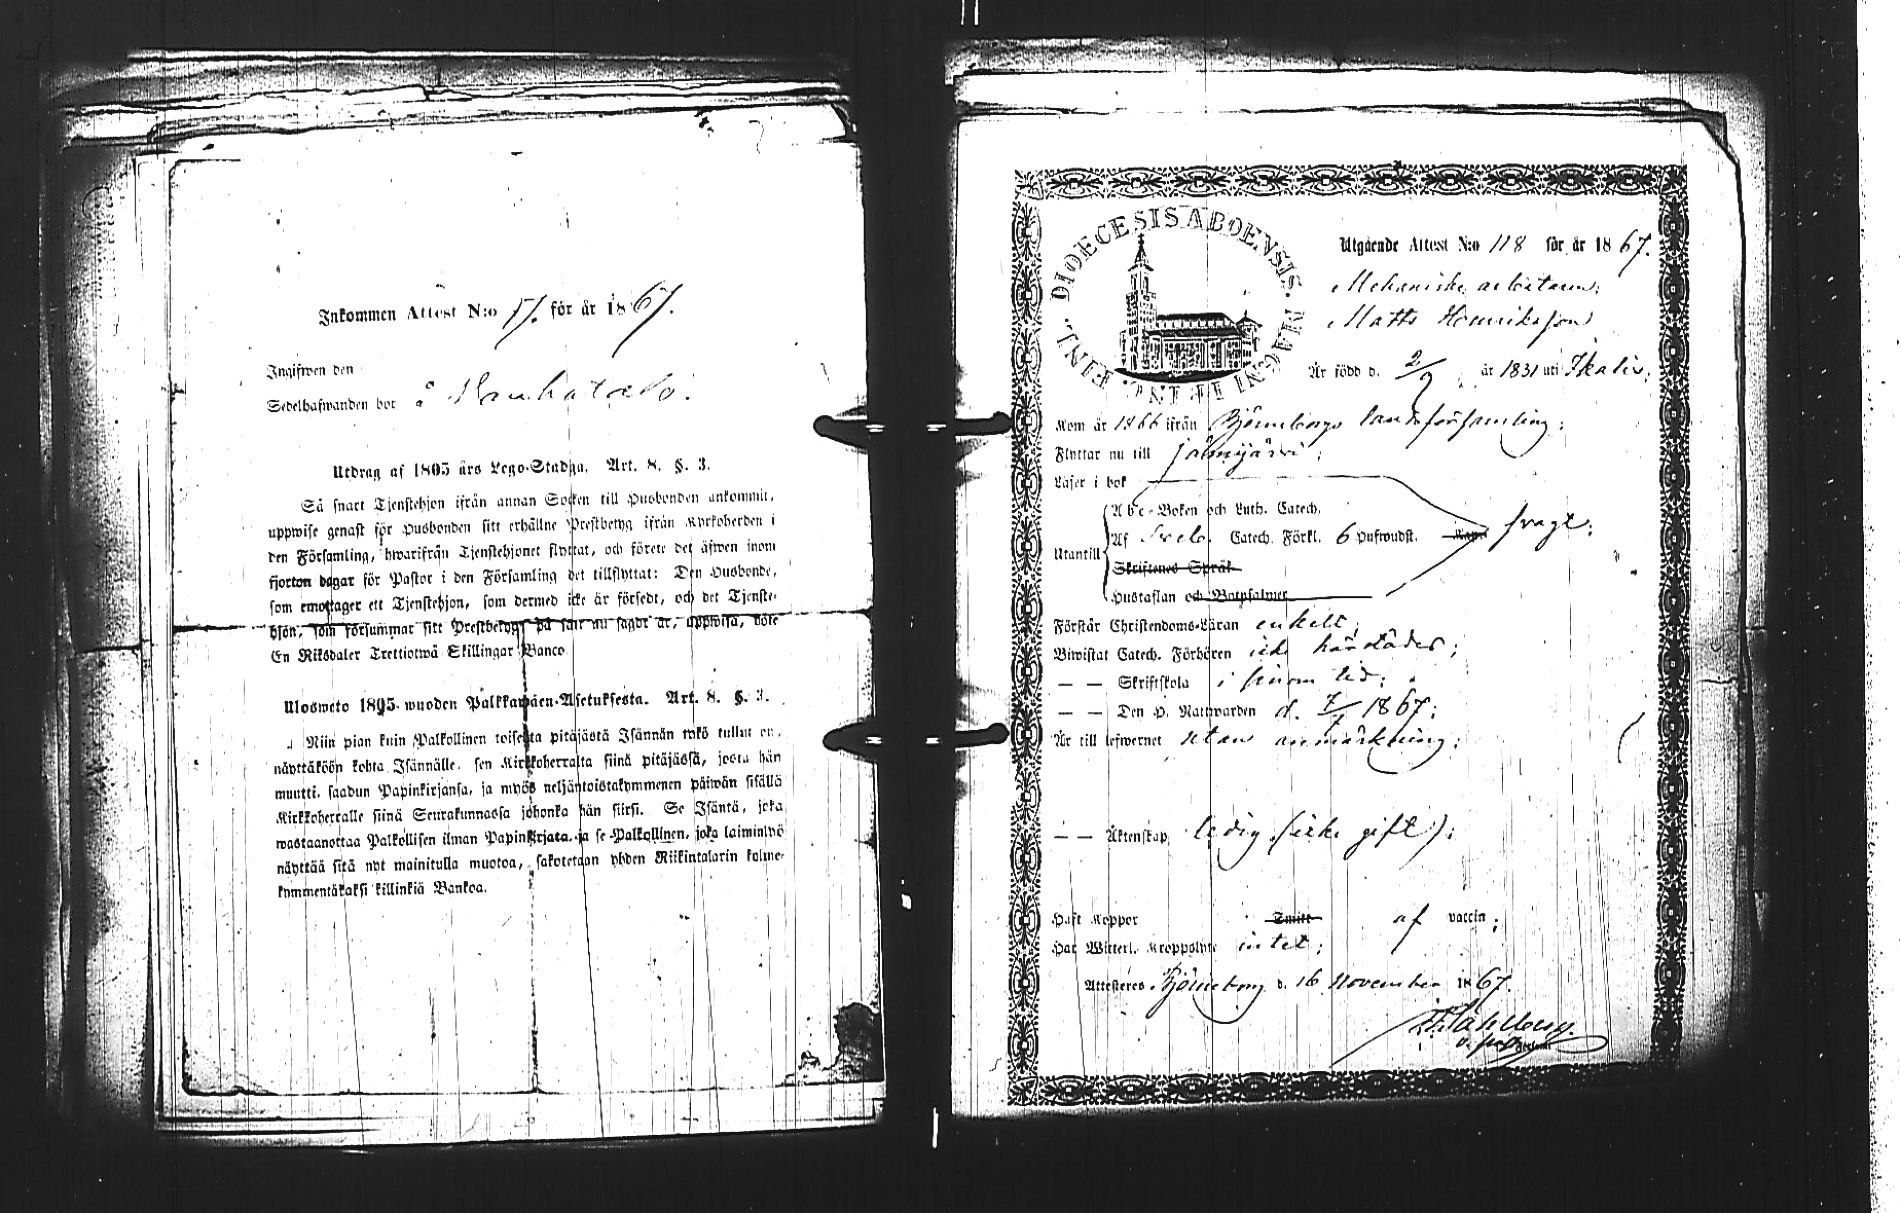 Inkommen Attest N:o 17. för år 1867.
Ingifwen den
Sedelhafwanden bor å
Utdrag af 1805 års Lego-Stadga. Art. 8. §. 3.
Så snart Tjenstehjon ifrån annan Socken till Husbonden ankommit,
uppwise genast för Husbonden sitt erhållne Prestbetyg ifrån Kyrkoherden i
den Församling, hwarifrån Tjenstehjonet flyttat, och förete det äfwen inom
fjorton dagar för Pastor i den Församling det tillflyttat: Den Husbonde,
som emottager ett Tjenstehjon, som dermed icke är försedt, och det Tjenste-
hjon, som försummar sitt Prestbetyg på sätt nu sagdt är, uppwisa, böte
En Riksdaler Trettiotwå Skillingar Banco
Ulosweto 1805 wuoden Palkkawäen-Asetuksesta. Art. 8. §. 3.
Niin pian kuin Palkollinen toisesta pitäjästä Isännän tykö tullut on,
näyttäköön kohta Isännälle, sen Kirkkoherralta siinä pitäjässä, josta hän
muutti, saadun Papinkirjansa, ja myös neljäntoistakymmenen päiwän sisällä
Kirkkoherralle siinä Seurakunnassa johonka hän siirsi. Se Isäntä, joka
wastaanottaa Palkollisen ilman Papinkirjata, ja se Palkollinen, joka laiminlyö
näyttää sitä nyt mainitulla muotoa, sakotetaan yhden Riikintalarin kolme-
kymmentäkaksi killinkiä Bankoa.
DIOECESIS ABOENSIS. MAGNI
FINL.
Utgående Attest N:o 118 för år 1867.
Mekaniske arbetaren,
Matts Henriksson
Är född d. 2/9 år 1831 uti Ikalis;
Kom år 1866 ifrån Björneborgs landsförsamling;
Flyttar nu till Jämijärvi;
Läser i bok
Abc-Boken och Luth. Catech.
Utantill Af Sveb. Catech. Förkl. 6 Hufwudst. svagt;
Skriftenes Språk
Hustaflan och Botpsalmer
Förstår Christendoms-Läran enkelt;
Biwistat Catech. Förhören icke härstädes;
— — Skriftskola i sinom tid;
— — Den H. Nattwarden d. 7/7 1867;
Är till lefwernet utan anmärkning;
— — Äktenskap ledig (icke gift);
Haft Koppor Smitt af vaccin;
Har Witterl. Kroppslyte intet;
Attesteres Björneborg d. 16 November 1867.